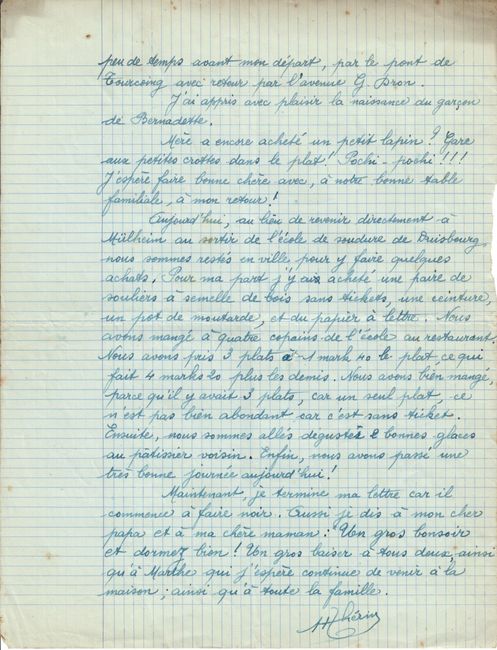 peu de temps avant mon départ, par le pont de
Tourcoing avec retour par l'avenue G. Dron.
J'ai appris avec plaisir la naissance du garçon
de Bernadette.
Mère a encore acheté un petit lapin? Gare
aux petites crottes dans le plat! Pochi-pochi!!!
J'espère faire bonne chère avec, à notre bonne table
familiale, à mon retour!
Aujourd'hui, au lieu de revenir directement à
Mülheim au sortir de l'école de soudure de Duisbourg,
nous sommes restés en ville pour y faire quelques
achats. Pour ma part j'y ais acheté une paire de
souliers a semelle de bois sans tickets, une ceinture,
un pot de moutarde, et du papier à lettre. Nous
avons mangé à quatre copains de l'école au restaurant.
Nous avons pris 3 plats à 1 mark 40 le plat ce qui
fait 4 marks 20 plus les demis. Nous avons bien mangé,
parce qu'il y avait 3 plats, car un seul plat, ce
n'est pas bien abondant car c'est sans ticket.
Ensuite, nous sommes allés dégustés 2 bonnes glaces
au pâtissier voisin. Enfin, nous avons passé une
très bonne journée aujourd'hui!
Maintenant, je termine ma lettre car il
commence à faire noir. Aussi je dis à mon cher
papa et à ma chère maman: Un gros bonsoir
et dormez bien! Un gros baiser à tous deux, ainsi
qu'à Marthe qui j'espère continue de venir à la
maison; ainsi qu'à toute la famille.